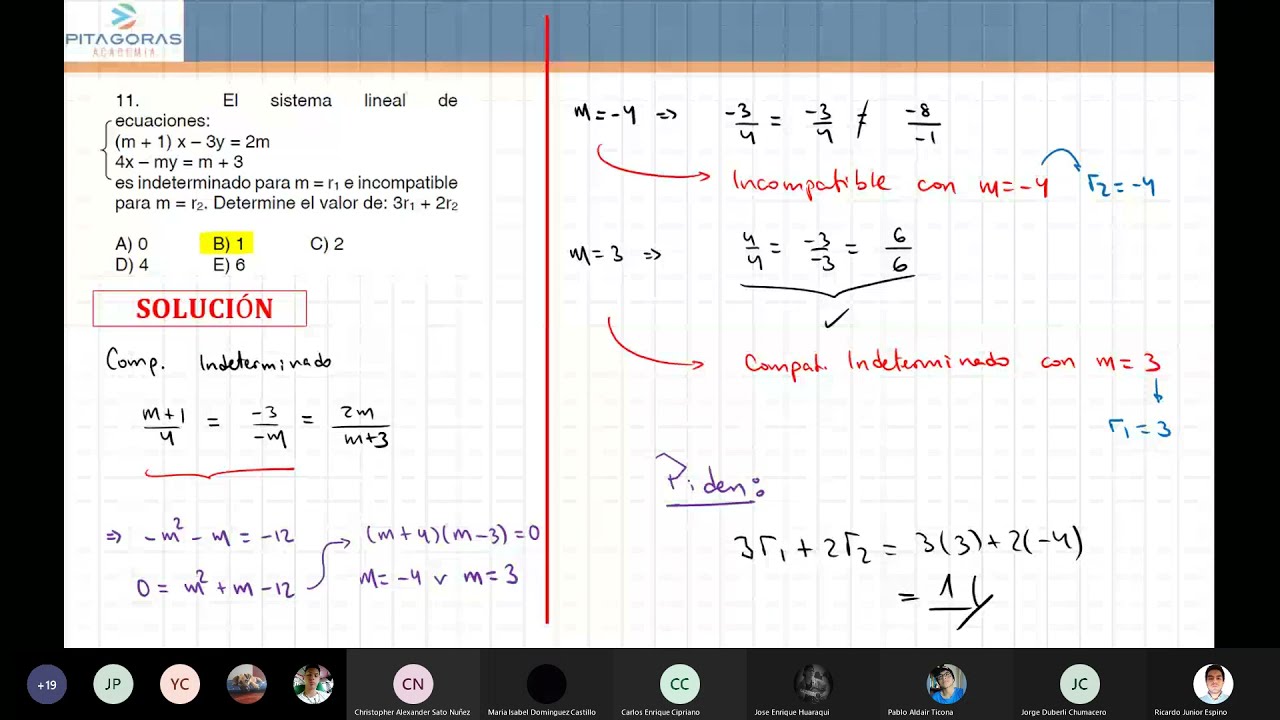 PITAGORAS
ACADEMIA
11. El sistema lineal de
ecuaciones:
(m + 1) x – 3y = 2m
4x – my = m + 3
es indeterminado para m = r₁ e incompatible
para m = r₂. Determine el valor de: 3r₁ + 2r₂
A) 0 B) 1 C) 2
D) 4 E) 6
SOLUCIÓN
Comp. Indeterminado
m+1/4 = -3/-m = 2m/m+3
⇒ -m² - m = -12
0 = m² + m - 12
(m+4)(m-3)=0
m=-4 v m=3
m=-4 ⇒ -3/4 = -3/4 ≠ -8/-1
Incompatible con m=-4
r₂=-4
m=3 ⇒ 4/4 = -3/-3 = 6/6
✓
Compat. Indeterminado con m=3
r₁=3
Piden:
3r₁ + 2r₂ = 3(3)+2(-4)
= 1
+19
JP
YC
CN
CC
JC
Christopher Alexander Sato Nuñez
Maria Isabel Dominguez Castillo
Carlos Enrique Cipriano
Jose Enrique Huaraqui
Pablo Aldair Ticona
Jorge Duberli Chumacero
Ricardo Junior Espino